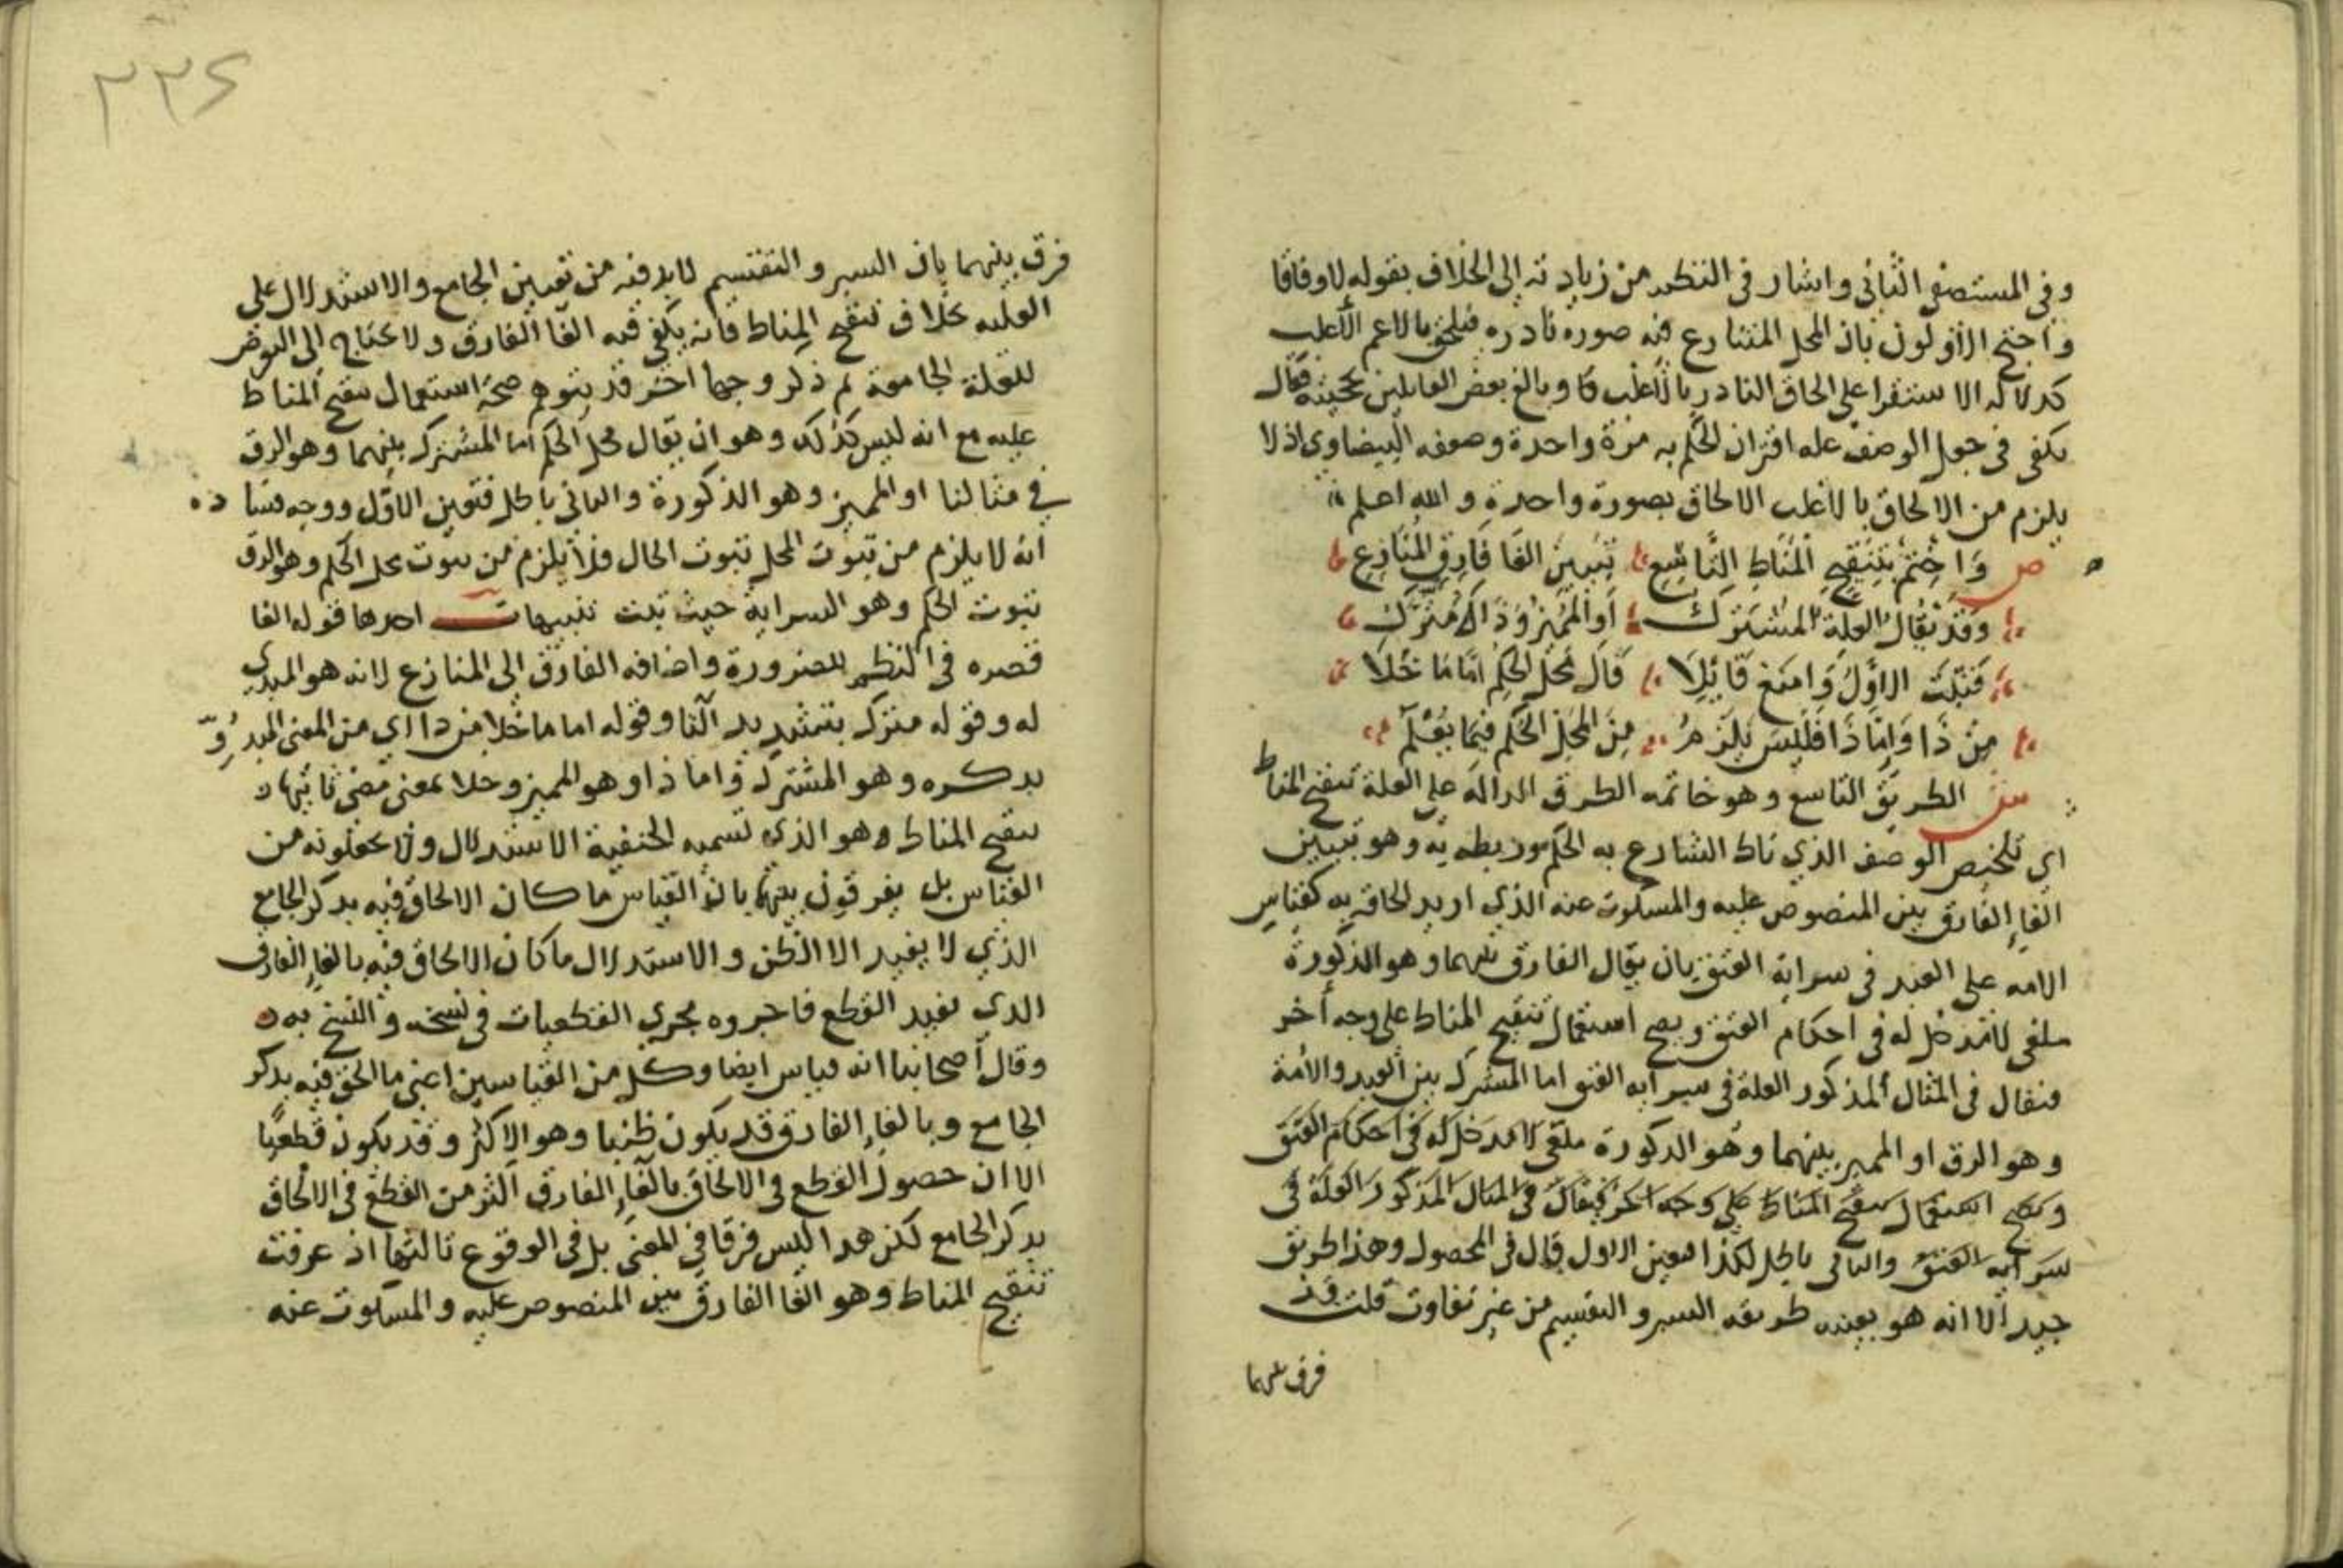 وفي المستصفي الثاني واشار في النظم من زيادته الي الخلاف بقوله لا وفاقا
واحتج الاولون بان المحل المتنازع فيه صوره نادره فيلحق بالاعم الاغلب
كدلاله الاستقرا علي الحاق النادر بالاغلب وبالغ بعض القايلين بحجيته فقال
يكفي في جعل الوصف عله اقتران الحكم به مرة واحدة وضعفه البيضاوي اذ لا
يلزم من الالحاق بالاغلب الالحاق بصورة واحدة والله اعلم
ص وَاخْتِمْ بتَنْقِيحِ المَنَاطِ التَّاسِعِ تَبيينَ الغَا فَارِقِ المُنَازِعِ
وَقَدْ يُقَالُ العِلَةُ المُشْتَرَكُ أو المُمَيِّزُ وَذَاكَ مُتَّرَكُ
فَيَثْبُتُ الاوَّلُ وَامْنَعْ قَائِلَا قَالَ مَحَلُّ الحُكْمِ امَّا مَا خَلَا
مِنْ ذَا وَامَّا ذَا فَلَيْسَ يَلْزَمُ مِنَ المَحَلِّ الحُكْمُ فِيمَا يُعْلَمُ
ش الطريق التاسع وهو خاتمه الطرق الداله علي العلة تنقيح المناط
اي تلخيص الوصف الذي ناط الشارع به الحكم وربطه به وهو تبيين
الغاء الفارق بين المنصوص عليه والمسكوت عنه الذي اريد لحاقه به كقياس
الامه علي العبد في سراية العتق بان يقال الفارق بينهما وهو الذكورة
ملغي لا مدخل له في احكام العتق ويصح استعمال تنقيح المناط علي وجه أخر
فيقال في المثال المذكور العلة في سرايه العتق اما المشترك بين العبد والأمة
وهو الرق او المميز بينهما وهو الذكورة ملغي لا مدخل له في احكام العتق
ويصح استعمال تنقيح المناط علي وجه اخر فيقال في المثال المذكور العلة في
سرايه العتق والثاني باطل لكذا فتعين الاول قال في المحصول وهذا طريق
جيد الا انه هو بعينه طريقه السبر والتقسيم من غير تفاوت قلت قد
فرق بينهما
٢٣٤
فرق بينهما بان السبر والتقسيم لا بد فيه من تعيين الجامع والاستدلال علي
العليه بخلاف تنقيح المناط فانه يكفي فيه الغا الفارق ولا يحتاج الي التعرض
للعلة الجامعة ثم ذكر وجها اخر قد يتوهم صحة استعمال تنقيح المناط
عليه مع انه ليس كذلك وهو ان يقال محل الحكم اما المشترك بينهما وهو الرق
في مثالنا او المميز وهو الذكورة والثاني باطل فتعين الاول ووجه فساده
انه لا يلزم من ثبوت المحل ثبوت الحال فلا يلزم من ثبوت محل الحكم وهو الرق
ثبوت الحكم وهو السراية حيث ثبت تنبيهات احدها قوله الغا
قصره في النظم للضرورة واضافه الفارق الي المنازع لانه هو المبدي
له وقوله متترك بتشديد التا وقوله اما ما خلا من ذا اي من المعني المبدؤ
بذكره وهو المشترك واما ذا وهو المميز وخلا بمعني مضي ثانيها
تنقيح المناط وهو الذي تسميه الحنفية الاستدلال ولا يجعلونه من
القياس بل يفرقون بينهما بان القياس ما كان الالحاق فيه بذكر الجامع
الذي لا يفيد الا الظن والاستدلال ما كان الالحاق فيه بالغاء الفارق
الذي يفيد القطع فاجروه مجري القطعيات في نسخه والنسخ به
وقال أصحابنا انه قياس ايضا وكل من القياسين اعني ما الحق فيه بذكر
الجامع وبالغاء الفارق قد يكون ظنيا وهو الاكثر وقد يكون قطعيًا
الا ان حصول القطع في الالحاق بالغاء الفارق اكثر من القطع في الالحاق
بذكر الجامع لكن هدا ليس فرقا في المعني بل في الوقوع ثالثها اذ عرفت
تنقيح المناط وهو الغا الفارق بين المنصوص عليه والمسكوت عنه